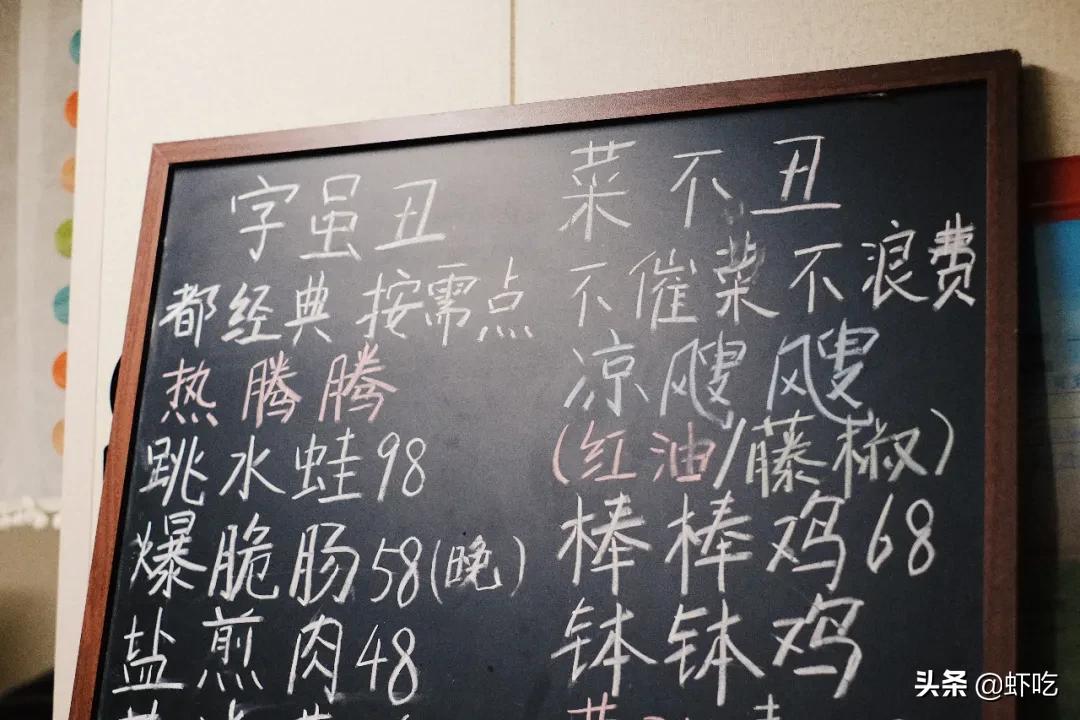 字虽丑 菜不丑
都经典 按需点 不催菜 不浪费
热腾腾
跳水蛙98
爆脆肠58(晚)
盐煎肉48
凉飕飕
(红油/藤椒)
棒棒鸡68
钵钵鸡
头条 @虾吃